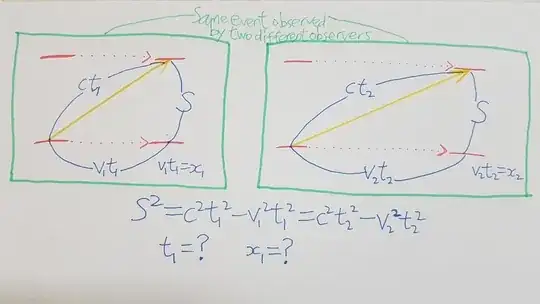 Same event observed
by two different observers
ct₁
S
v₁t₁
v₁t₁=x₁
ct₂
S
v₂t₂
v₂t₂=x₂
S²=c²t₁²-v₁²t₁²=c²t₂²-v₂²t₂²
t₁=? x₁=?